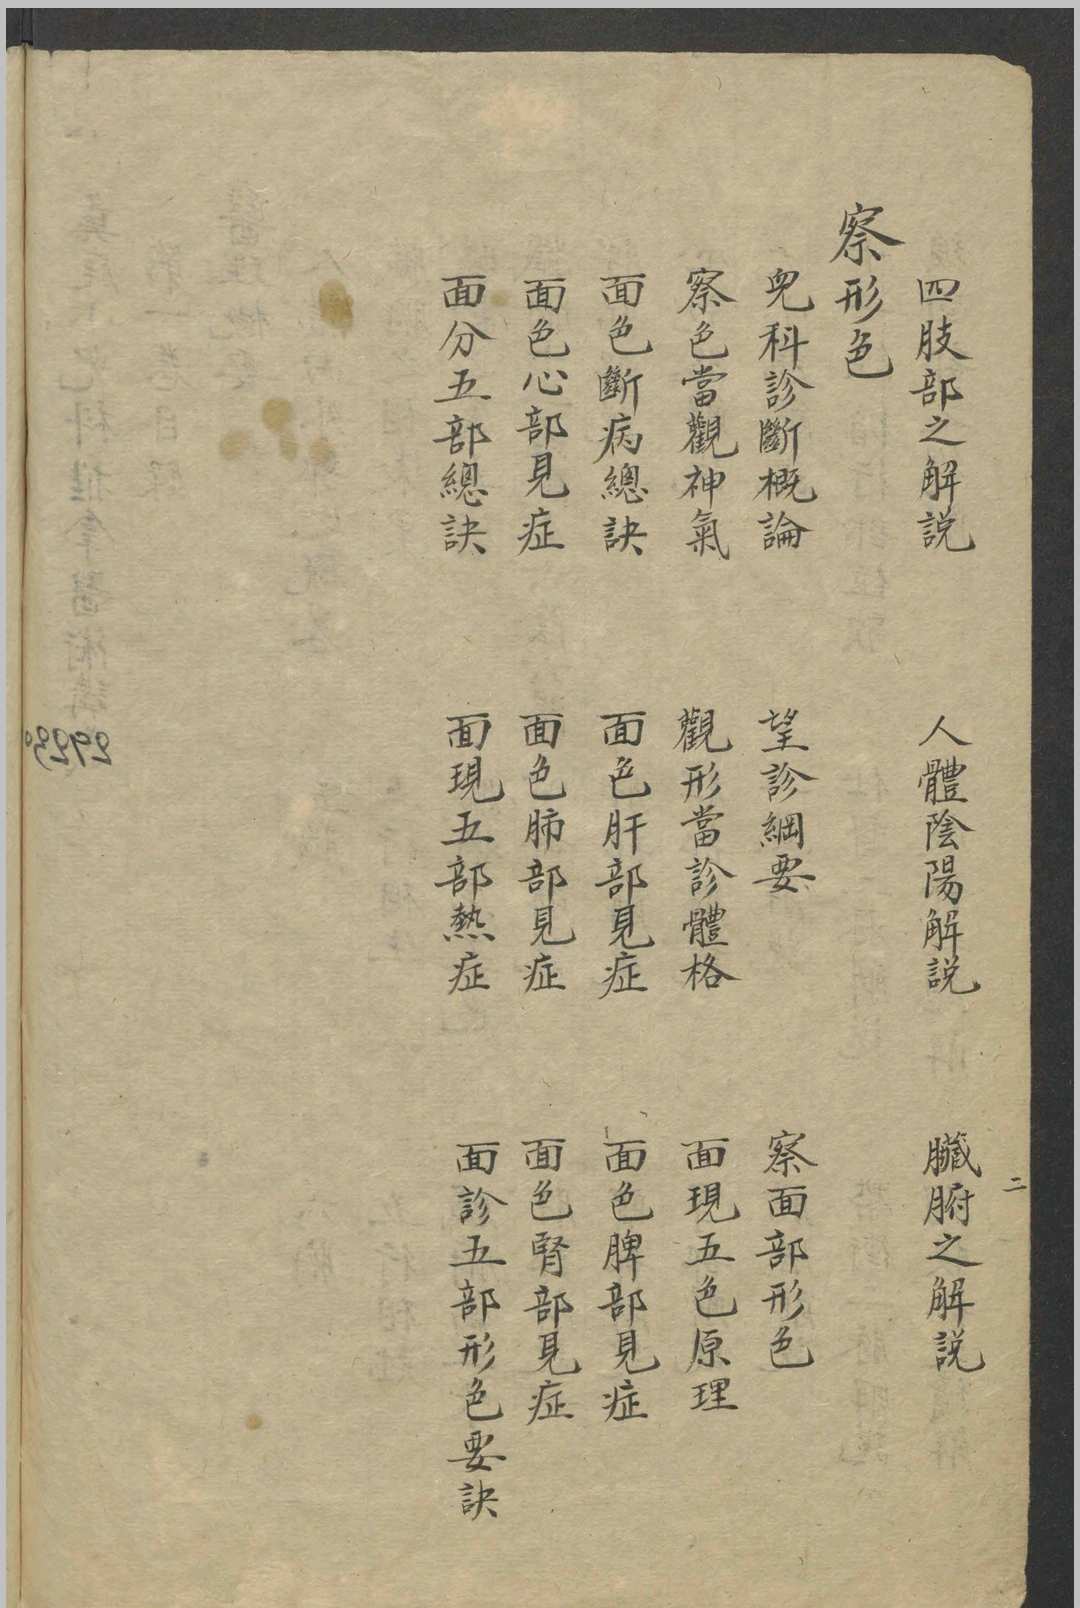 四肢部之解説　人體陰陽解説　臟腑之解説
二
察形色
兒科診斷概論　望診綱要　察面部形色
察色當觀神氣　觀形當診體格　面現五色原理
面色斷病總訣　面色肝部見症　面色脾部見症
面色心部見症　面色肺部見症　面色腎部見症
面分五部總訣　面現五部熱症　面診五部形色要訣